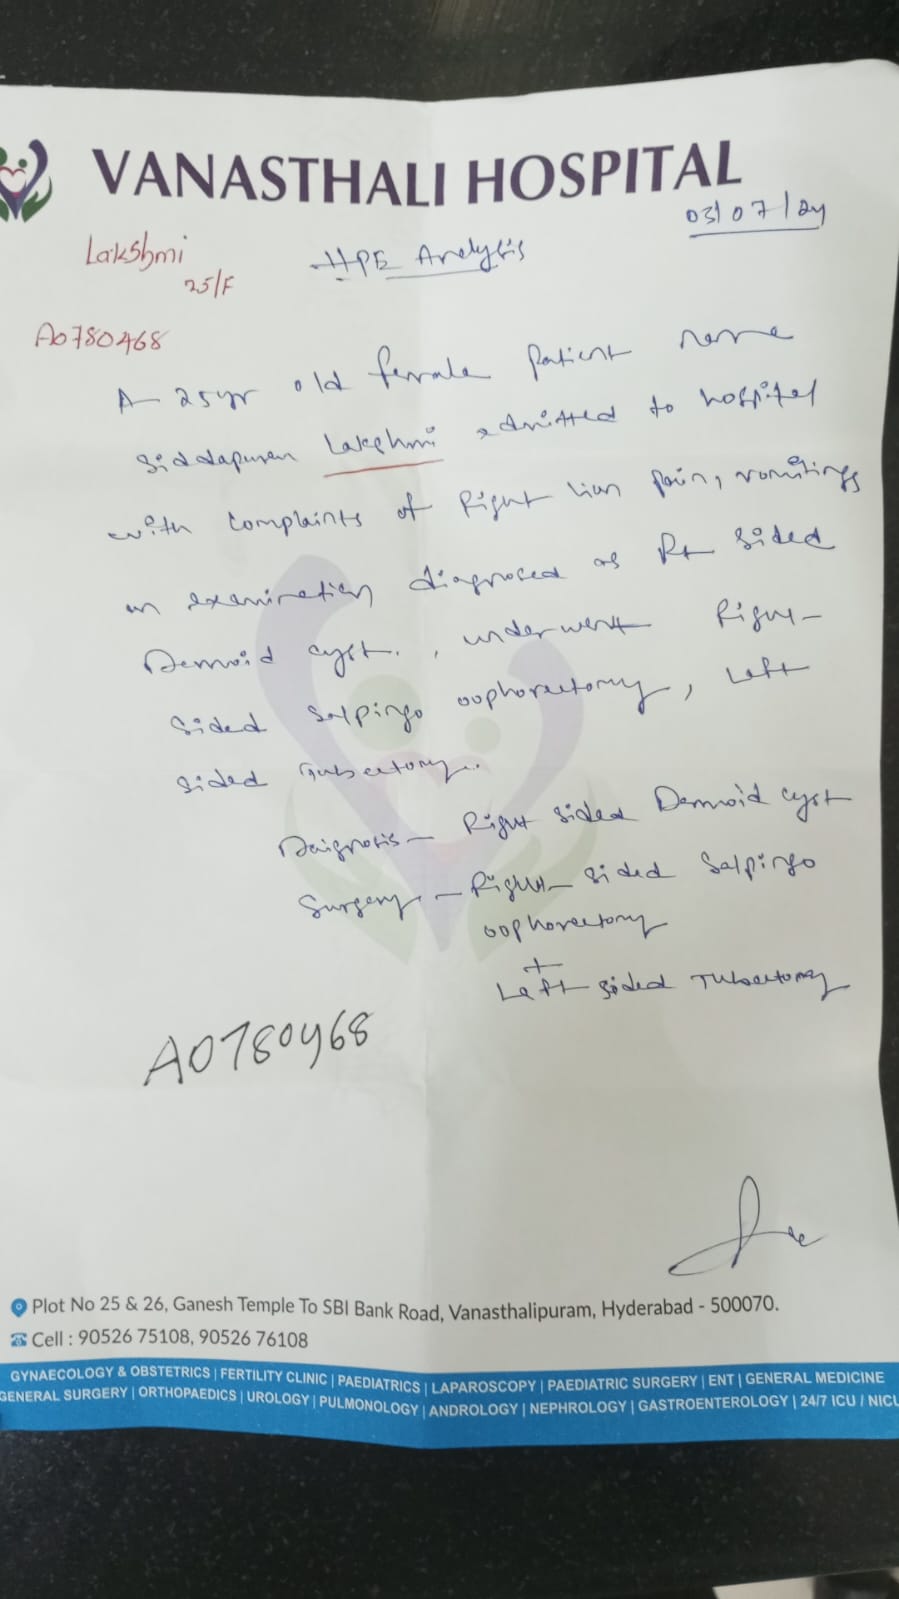 VANASTHALI HOSPITAL
03/07/24
Lakshmi
25/F
HPE Analysis
A0780468
A 25yr old female patient name
Siddapuram Lakshmi admitted to hospital
with complaints of Right pain, vomitings
on examination diagnosed as Rt sided
Dermoid cyst., underwent Right
sided salpingo oophorectomy, Left
sided Tubectomy.
Daignosis - Right sided Dermoid cyst
Surgery - Right sided Salpingo
oophorectomy
+
Left sided Tubectomy
A0780468
Plot No 25 & 26, Ganesh Temple To SBI Bank Road, Vanasthalipuram, Hyderabad - 500070.
Cell : 90526 75108, 90526 76108
GYNAECOLOGY & OBSTETRICS | FERTILITY CLINIC | PAEDIATRICS | LAPAROSCOPY | PAEDIATRIC SURGERY | ENT | GENERAL MEDICINE
GENERAL SURGERY | ORTHOPAEDICS | UROLOGY | PULMONOLOGY | ANDROLOGY | NEPHROLOGY | GASTROENTEROLOGY | 24/7 ICU / NICU